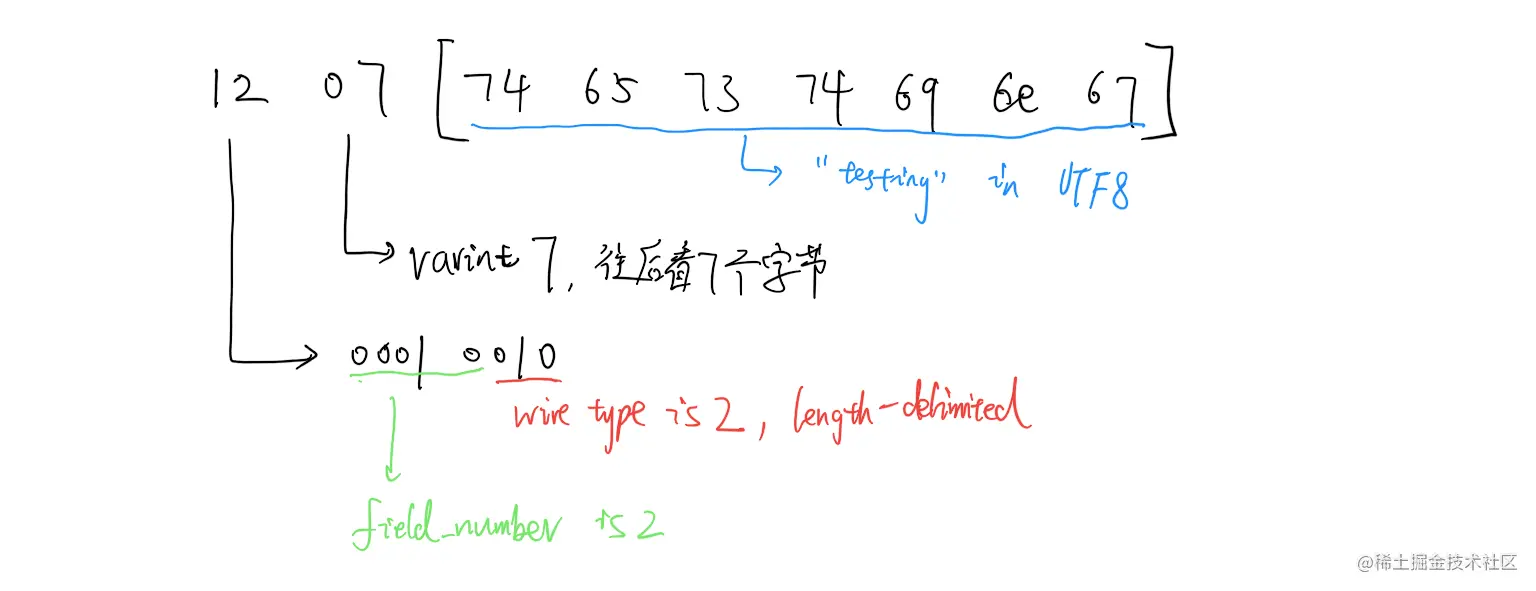 12 07 [74 65 73 74 69 6e 67]
"testing" in UTF8
varint 7, 往后看7个字节
0001 0010
wire type is 2, length-delimited
field_number is 2
@稀土掘金技术社区